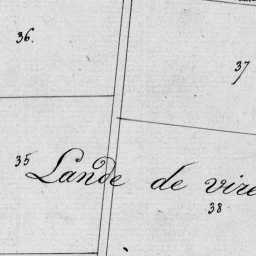 36.
37
35
Lande de vire
38